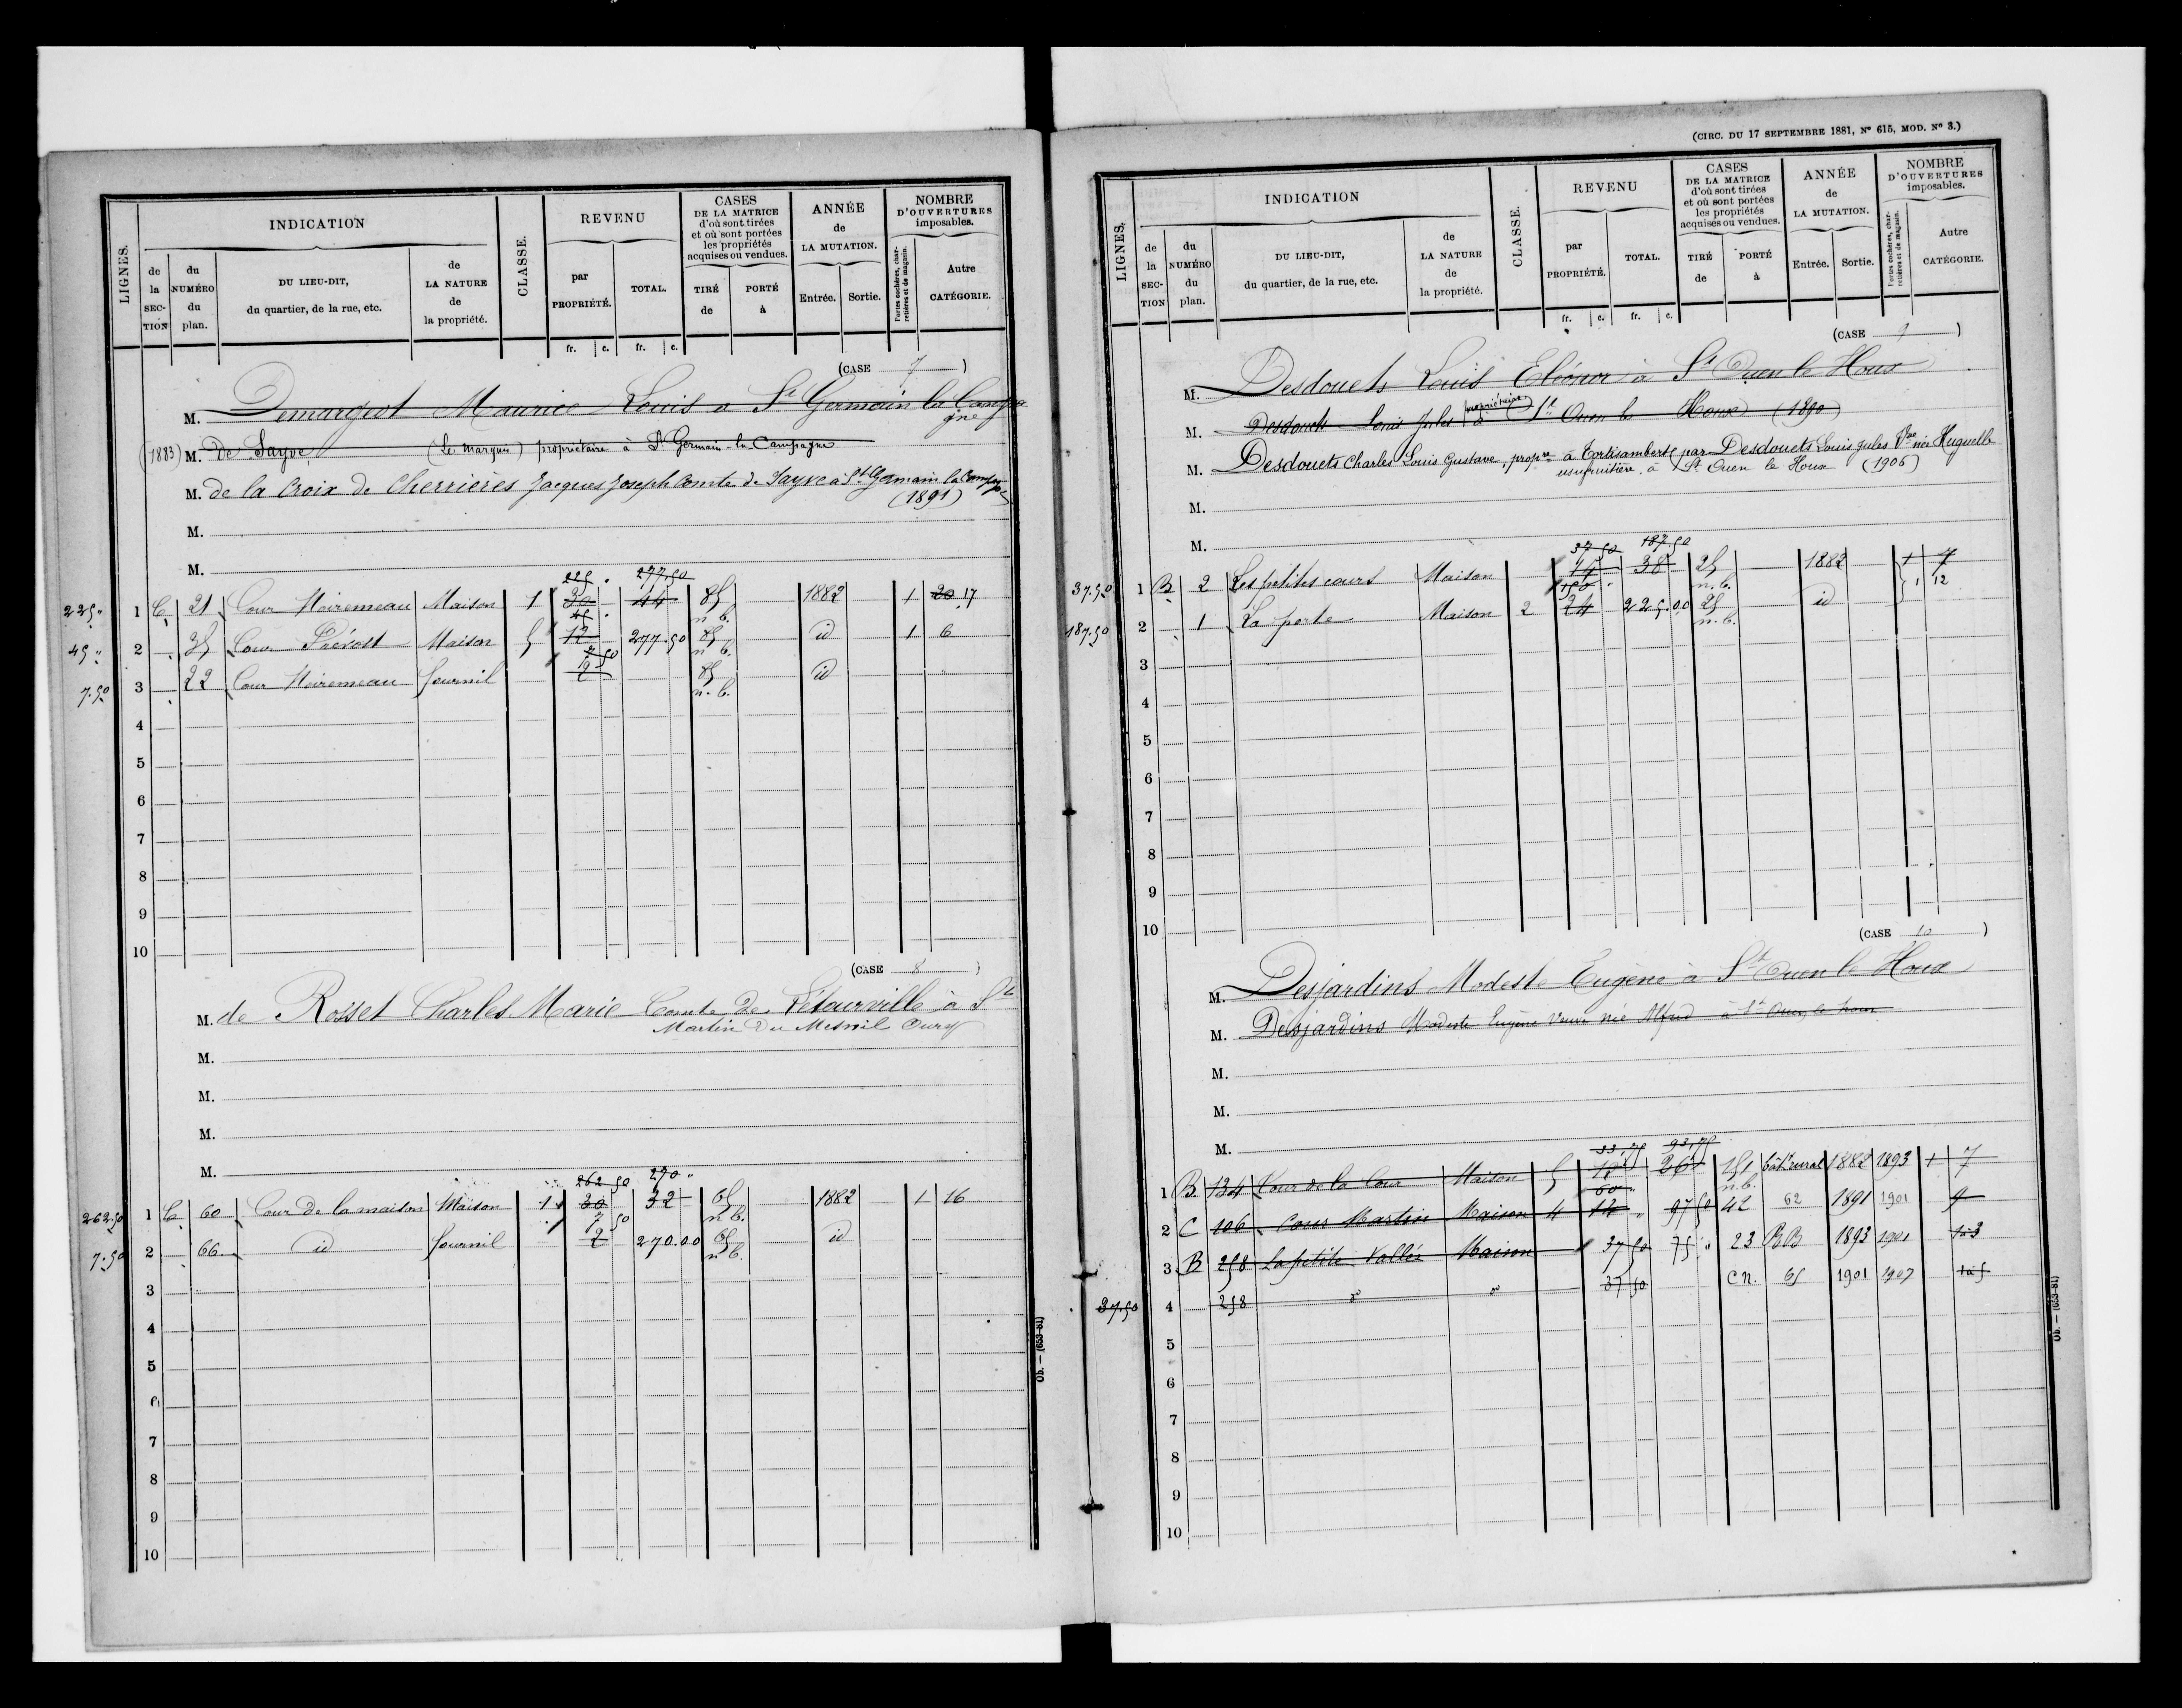 LIGNES.
INDICATION
de la SECTION
du NUMÉRO du plan.
DU LIEU-DIT, du quartier, de la rue, etc.
de LA NATURE de la propriété.
CLASSE.
REVENU
par PROPRIÉTÉ.
TOTAL.
fr. c. fr. c.
CASES DE LA MATRICE d'où sont tirées et où sont portées les propriétés acquises ou vendues.
TIRÉ de
PORTÉ à
ANNÉE de LA MUTATION.
Entrée. Sortie.
NOMBRE D'OUVERTURES imposables.
Portes cochères, charretières et de magasin.
Autre CATÉGORIE.
(CASE 7)
M. Demargeot Maurice Louis a St Germain la Campagne
(1883) M. De Sayve (le marquis) propriétaire à St Germain-la-Campagne
M. de la Croix de Cherrières Jacques Joseph Comte de Sayve à St Germain la Campagne
(1891)
M.
M.
225 . 277.50
225 " 1 C 21 Cour Noiremeau Maison 1 30 44 85 n.b. 1882 1 20 17
45 .
45 " 2 35 Cour Prévost Maison 5 12 277.50 85 n.b. id 1 6
7 50
7.50 3 22 Cour Noiremeau fournil 2 85 n.b. id
4
5
6
7
8
9
10
(CASE 8)
M. de Rosset Charles Marie Comte de Létourville à St
Martin du Mesnil Oury
M.
M.
M.
M.
262 50 270 "
262.50 1 C 60 Cour de la maison Maison 1 30 32 65 n.b. 1882 1 16
7 50
7.50 2 66 id fournil 2 270.00 65 n.b. id
3
4
5
6
7
8
9
10
Ob. — (653-81)
(CIRC. DU 17 SEPTEMBRE 1881, N° 615, MOD. N° 3.)
LIGNES.
INDICATION
de la SECTION
du NUMÉRO du plan.
DU LIEU-DIT, du quartier, de la rue, etc.
de LA NATURE de la propriété.
CLASSE.
REVENU
par PROPRIÉTÉ.
TOTAL.
fr. c. fr. c.
CASES DE LA MATRICE d'où sont tirées et où sont portées les propriétés acquises ou vendues.
TIRÉ de
PORTÉ à
ANNÉE de LA MUTATION.
Entrée. Sortie.
NOMBRE D'OUVERTURES imposables.
Portes cochères, charretières et de magasin.
Autre CATÉGORIE.
(CASE 9)
M. Desdouets Louis Eléonor à St Ouen le Houx
M. Desdouets Louis Jules propriétaire à St Ouen le Houx (1890)
M. Desdouets Charles Louis Gustave, propre à Tortisambert, par Desdouets Louis Jules Vve née Huguelle
usufruitière, à St Ouen le Houx (1906)
M.
M.
37 50 187.50
37.50 1 B 2 Les petites cours Maison 14 38 25 n.b. 1882 1 7
150 .
187.50 2 1 La porte Maison 2 24 225.00 25 n.b. id 1 12
3
4
5
6
7
8
9
10
(CASE 10)
M. Desjardins Modeste Eugène à St Ouen le Houx
M. Desjardins Modeste Eugène Veuve née Alfred à St Ouen le houx
M.
M.
M.
33,75 93,75
1 B 134 Cour de la Cour Maison 5 12 26 151 n.b. bâtt rural 1882 1893 1 7
60 "
2 C 106 Cour Martin Maison 4 14 97 50 42 62 1891 1901 9
3 B 258 La petite Vallée Maison 37 50 75 " 23 BB 1893 1901 1 à 3
37.50 4 258 d° d° 37 50 C.N. 65 1901 1907 1 à 5
5
6
7
8
9
10
Ob. — (653-81)